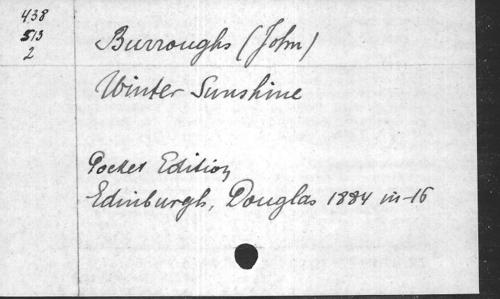 438
513
2
Burroughs (John)
Winter Sunshine
Pocket Edition
Edinburgh, Douglas 1884 in-16